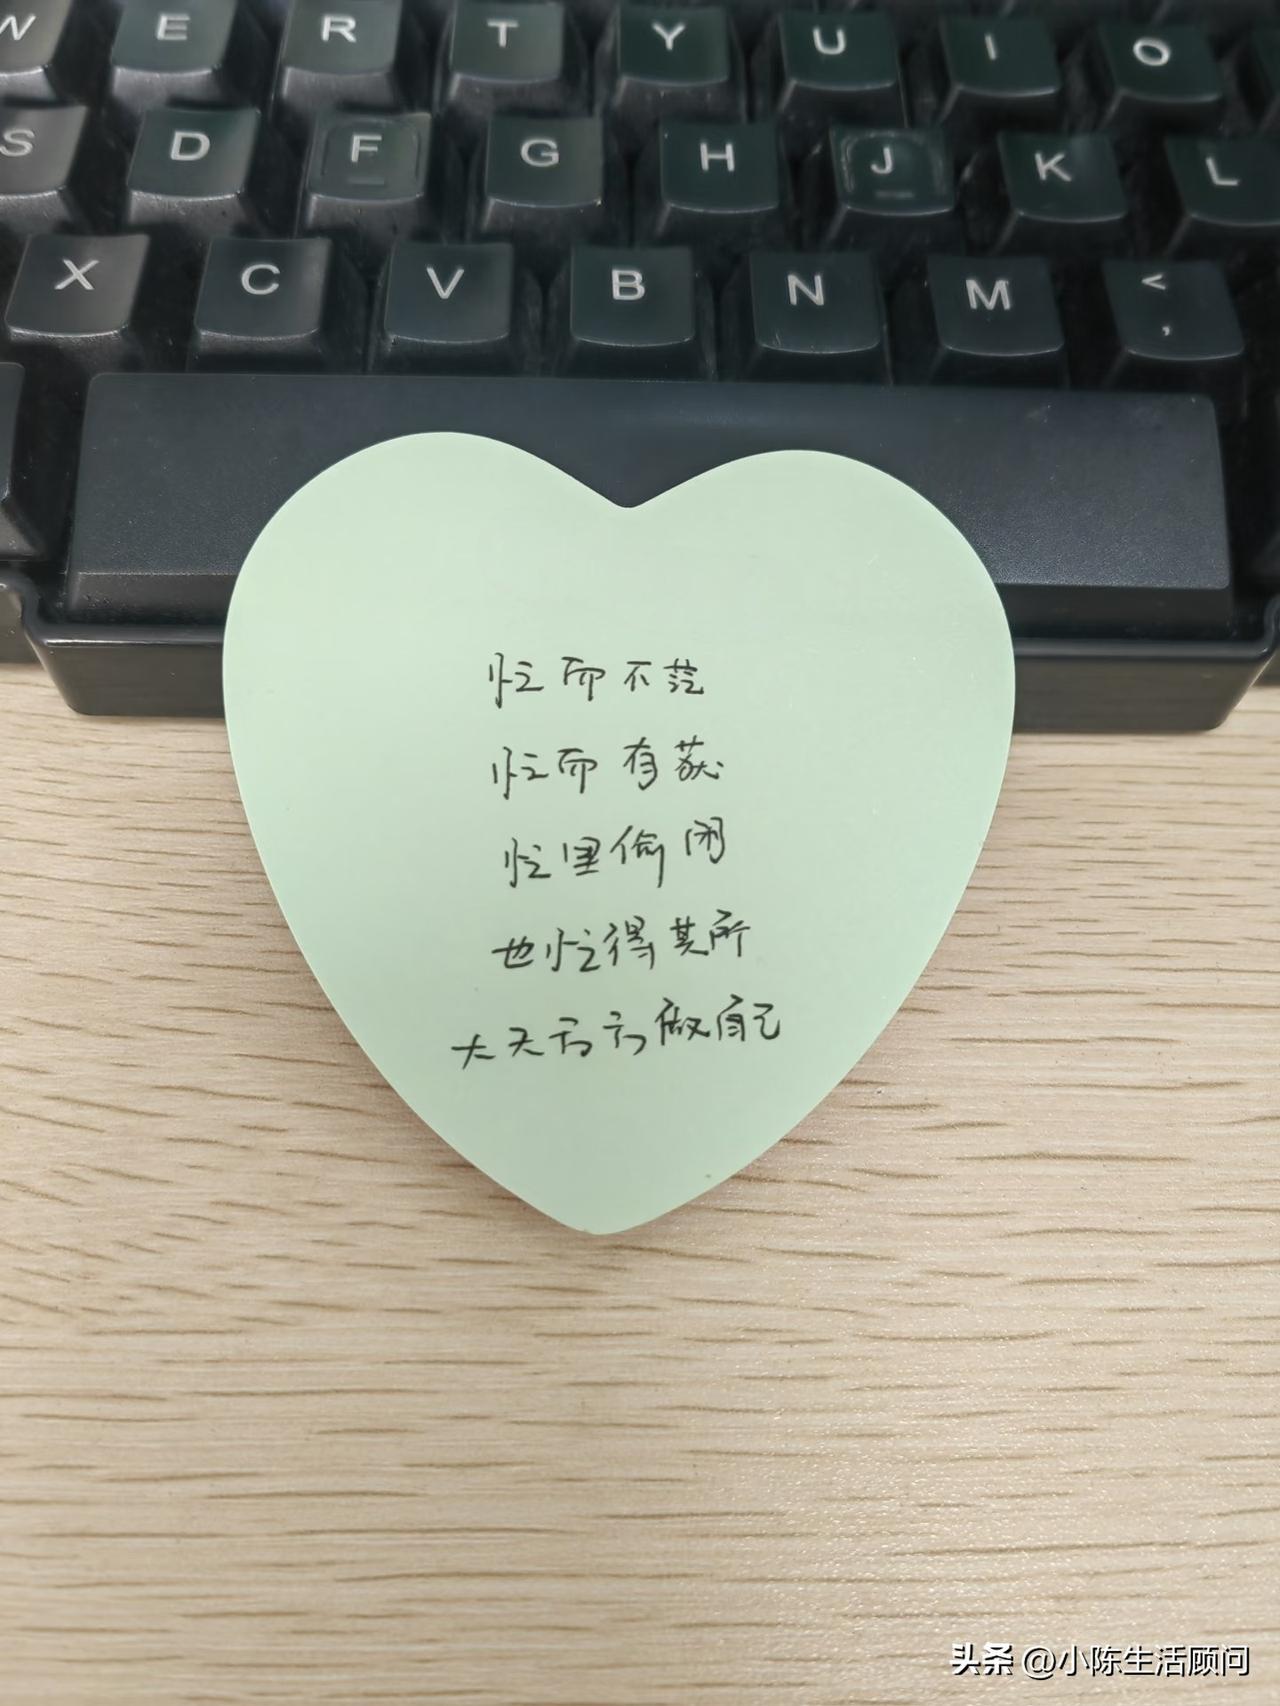 W E R T Y U I O
S D F G H J K L
X C V B N M <
,
忙而不茫
忙而有获
忙里偷闲
也忙得其所
大大方方做自己
头条 @小陈生活顾问